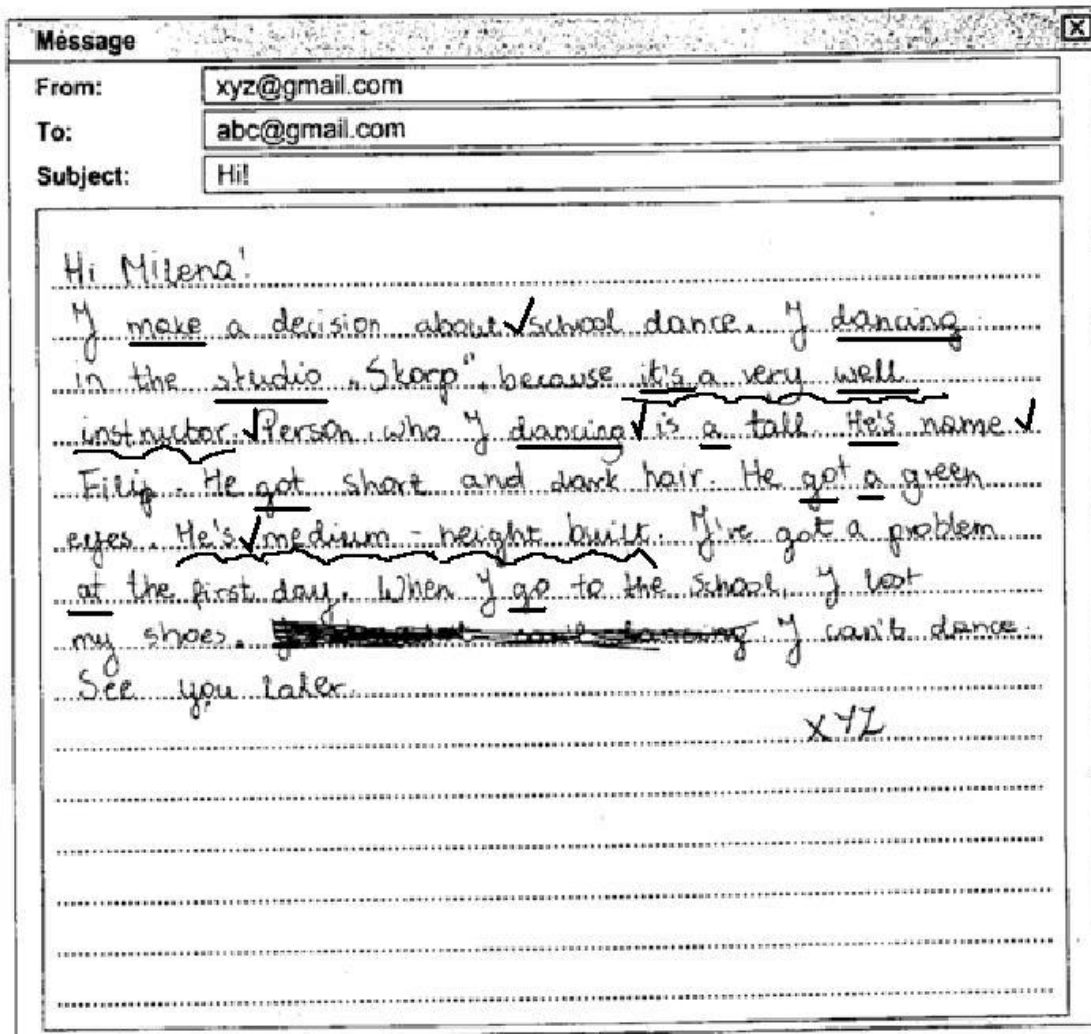 Message
X
From: xyz@gmail.com
To: abc@gmail.com
Subject: Hi!
Hi Milena!
I make a decision about school dance. I dancing
in the studio „Skorp", because it's a very well
instructor. Person, who I dancing is a tall. He's name
Filip. He got short and dark hair. He got a green
eyes. He's medium-height built. I've got a problem
at the first day. When I go to the school, I lost
my shoes. I can't dance.
See you later.
XYZ